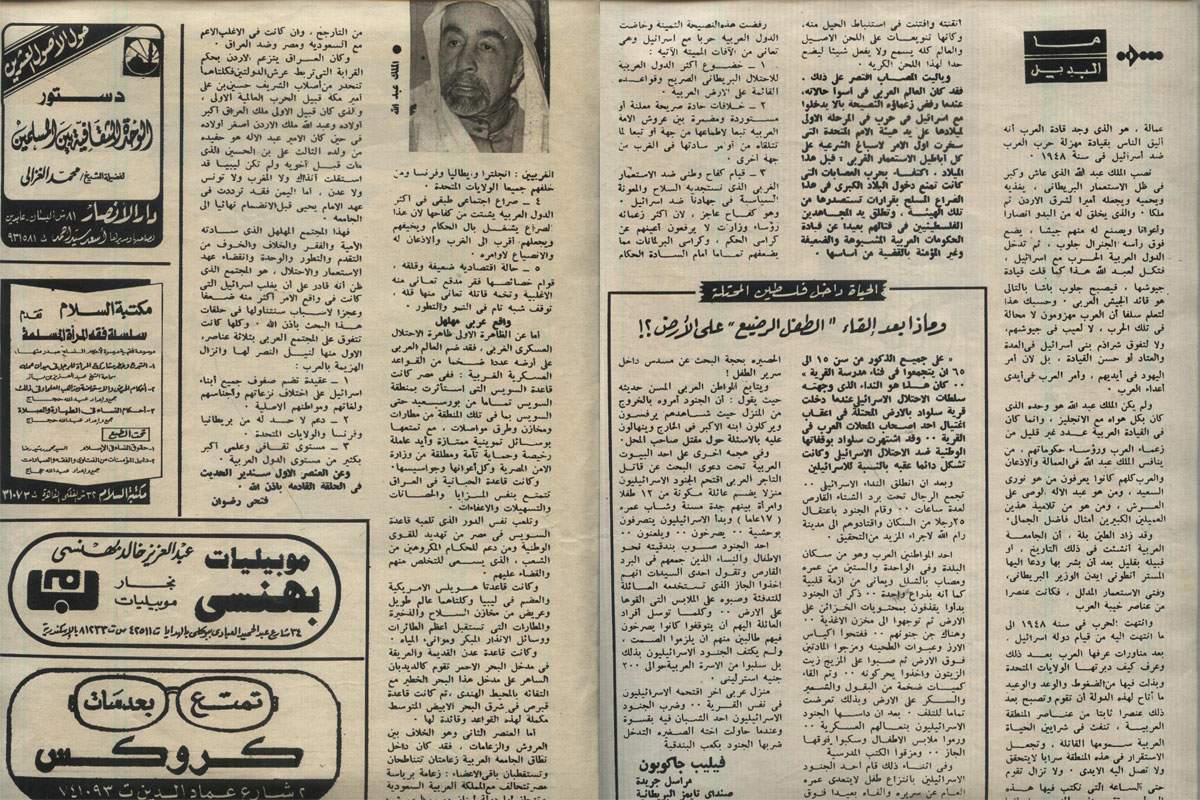 ما
البديل
عمالة ، هو الذى وجد قادة العرب أنه
أليق الناس بقيادة مهزلة حرب العرب
ضد أسرائيل فى سنة ١٩٤٨ .
نصب الملك عبد الله الذى عاش وكبر
فى ظل الاستعمار البريطانى ، يغذيه
ويحميه ويجعله أميرا لشرق الاردن ثم
ملكا . والذى يخلق له من البدو أنصارا
وأعوانا ويصنع له منهم جيشا ، يضع
فوق رأسه الجنرال جلوب ، ثم تدخل
الدول العربية الحرب مع اسرائيل ،
فتكل لعبد الله هذا كما قلت قيادة
جيوشها ، فيصبح جلوب باشا بالتالى
هو قائد الجيش العربى . وحسبك هذا
لتعلم سلفا أن العرب مهزومون لا محالة
فى تلك الحرب ، لا لعيب فى جيوشهم،
ولا لتفوق شراذم بنى اسرائيل فى العدة
والعتاد أو حسن القيادة ، بل لان أمر
اليهود فى أيديهم ، وأمر العرب فى أيدى
أعداء العرب .
ولم يكن الملك عبد الله هو وحده الذى
كان بكل هواه مع الانجليز ، وانما كان
فى القيادة العربية عدد غير قليل من
زعماء العرب ورؤساء حكوماتهم ، من
ينافس الملك عبد الله فى العمالة والاذعان
والعرب كلهم كانوا يعرفون من هو نورى
السعيد ، ومن هو عبد الاله الوصى على
العرش ، ومن هو من تلاميذ هذين
العميلين الكبيرين أمثال فاضل الجمالى.
وقد زاد الطين بلة ، أن الجامعة
العربية أنشئت فى ذلك التاريخ ، أو
قبيله بقليل بعد أن بشر بها ودعا اليها
المستر أنطونى ايدن الوزير البريطانى،
وفتى الاستعمار المدلل ، فكانت عنصرا
من عناصر خيبة العرب
وانتهت الحرب فى سنة ١٩٤٨ الى
ما انتهت اليه من قيام دولة اسرائيل .
بعد مناورات عرفها العرب بعد ذلك
وعرف كيف دبرتها الولايات المتحدة
وبذلت فيها من الضغوط والوعد والوعيد
ما أتاح لهذه الدولة أن تقوم وتصبح بعد
ذلك عنصرا ثابتا من عناصر المنطقة
العربية ، تنفث فى شرايين الحياة
العربية سمومها القاتلة ، وتجعل
الاستقرار فى هذه المنطقة سرابا لايتحقق
ولا تصل اليه الايدى . ولا تزال تقوم
حتى الساعة التى تكتب فيها هذه
أتقنته وأفتنت فى استنباط الحيل منه،
وكأنها تنويعات على اللحن الاصيل
والعالم كله يسمع ولا يفعل شيئا ليضع
حدا لهذا اللحن الكريه .
وياليت المصاب اقتصر على ذلك .
فقد كان العالم العربى فى أسوأ حالاته،
عندما رفض زعماؤه النصيحة بألا يدخلوا
مع اسرائيل فى حرب فى المرحلة الاولى
لميلادها على يد هيئة الامم المتحدة التى
سخرت أول الامر لاسباغ الشرعية على
كل أباطيل الاستعمار الغربى ، قبل هذا
الميلاد ، اكتفاء بحرب العصابات التى
كانت تمنع دخول البلاد الكبرى فى هذا
الصراع المسلح بقرارات تستصدرها من
تلك الهيئة ، وتطلق يد المجاهدين
الفلسطينيين فى قتالهم بعيدا عن قيادة
الحكومات العربية المشبوهة والضعيفة
وغير المؤمنة بالقضية من أساسها .
رفضت هذه النصيحة الثمينة وخاضت
الدول العربية حربا مع اسرائيل وهى
تعانى من الآفات المميتة الآتية :
١ – خضوع أكثر الدول العربية
للاحتلال البريطانى الصريح وقواعده
القائمة على الارض العربية .
٢ – خلافات حادة صريحة معلنة أو
مستوردة ومضمرة بين عروش الامة
العربية تبعا لاطماعها من جهة أو تبعا لما
تتلقاه من أوامر سادتها فى الغرب من
جهة أخرى .
٣ – قيام كفاح وطنى ضد الاستعمار
الغربى الذى نستجديه السلاح والمعونة
السياسية فى جهادنا ضد اسرائيل .
وهو كفاح عاجز ، لان أكثر زعمائه
رؤساء وزارات لا يرفعون أعينهم عن
كراسى الحكم ، وكراسى البرلمانات مما
يضعفهم تماما أمام السادة الحكام
الحياة داخل فلسطين المحتلة
وماذا بعد إلقاء "الطفل الرضيع" على الأرض ؟!
« على جميع الذكور من سن ١٥ الى
٦٥ أن يتجمعوا فى فناء مدرسة القرية »
٠٠ كان هذا هو النداء الذى وجهته
سلطات الاحتلال الاسرائيلى عندما دخلت
قرية سلواد بالارض المحتلة فى أعقاب
اغتيال أحد أصحاب المحلات العرب فى
القرية ٠٠ وقد اشتهرت سلواد بوقفاتها
الوطنية ضد الاحتلال الاسرائيلى وكانت
تشكل دائما عقبه بالنسبة للاسرائيلين
وبعد أن انطلق النداء الاسرائيلى ٠٠
تجمع الرجال تحت برد الشتاء القارص
لعدة ساعات ٠٠ وقام الجنود باعتقال
٢٥ رجلا من السكان واقتادوهم الى مدينة
رام الله لاجراء المزيد من التحقيق .
أحد المواطنين العرب وهو من سكان
البلدة وفى الواحدة والستين من عمره
ومصاب بالشلل ويعانى من أزمة قلبية
كما أنه بذراع واحدة ٠٠ ذكر أن الجنود
بدأوا يقذفون بمحتويات الخزائن على
الارض ثم توجهوا الى مخزن الاغذية ٠٠
وهناك جن جنونهم ٠٠ ففتحوا أكياس
الارز وعبوات الطحينه ومزجوا المادتين
فوق الارض ثم صبوا على المزيج زيت
الزيتون وأخذوا يحركونه ٠٠ وتم القاء
كميات ضخمة من البقول والشعير
والسكر على الارض وبذلك تعرضت
تماما للتلف ٠ بعد أن داسها الجنود
الاسرائيليون بنعالهم العسكرية ٠٠
ورموا ملابس الاطفال وسكبوا فوقها
الجاز ٠٠ ومزقوا الكتب المدرسية
وفى أثناء ذلك قام أحد الجنود
الاسرائيلين بانتزاع طفل لايتعدى عمره
العام من سريره وألقاه بعيدا فوق
الحصيره بحجة البحث عن مسدس داخل
سرير الطفل !
ويتابع المواطن العربى المسن حديثه
حيث يقول : أن الجنود أمروه بالخروج
من المنزل حيث شاهدهم يرفسون
ويركلون ابنه الاكبر فى الخارج وينهالون
عليه بالاسئلة حول مقتل صاحب المحل.
وفى هجمة أخرى على أحد البيوت
العربية تحت دعوى البحث عن قاتل
التاجر العربى اقتحم الجنود الاسرائيليون
منزلا يضم عائلة مكونة من ١٢ طفلا
وامرأة بينهم جدة مسنة وشاب عمره
( ١٧ عاما ) وبدأ الاسرائيليون يتصرفون
بوحشية ٠٠ يصرخون ٠٠ ويلعنون ٠٠
أحد الجنود صوب بندقيته نحو
الاطفال والنساء الذين جمعهم فى البرد
القارص وتقول احدى السيدات انهم
أخذوا الجاز الذى تستخدمه العائلة
للتدفئة وصبوه على الملابس التى ألقوها
على الارض ٠٠ وكلما توسل أفراد
العائلة اليهم أن يتوقفوا كانوا يصرخون
فيهم طالبين منهم أن يلزموا الصمت .
ولم يكتف الجنود الاسرائيليون بذلك
بل سلبوا من الاسرة العربية حوالى ٢٠٠
جنيه استرلينى .
منزل عربى آخر اقتحمته الاسرائيليون
فى نفس القرية ٠٠ وضرب الجنود
الاسرائيليون أحد الشبان فيه بقسوة
وعندما حاولت أخته الصغيره التدخل
ضربها الجنود بكعب البندقية
فيليب جاكوبون
مراسل جريدة
صنداى تايمز البريطانية
● الملك عبد الله
الغربيين : انجلترا وايطاليا وفرنسا ومن
خلفهم جميعا الولايات المتحدة .
٤ – صراع اجتماعى طبقى فى أكثر
الدول العربية يشتت من كفاحها لان هذا
الصراع يشغل بال الحكام ويخيفهم
ويجعلهم أقرب الى الغرب والاذعان له
والانصياع لاوامره .
٥ – حالة اقتصادية ضعيفة وقلقه ،
قوام خصائصها فقر مدقع تعانى منه
الاغلبية وتخمه قاتلة تعانى منها قله .
توقف شبه تام فى النمو والتطور .
واقع عربى مهلهل
أما عن الظاهرة الاولى ظاهرة الاحتلال
العسكرى الغربى ، فقد ضم العالم العربى
على أرضه عددا ضخما من القواعد
العسكرية الغربية : ففى مصر كانت
قاعدة السويس التى استأثرت بمنطقة
السويس تماما من بورسعيد حتى
السويس بما فى تلك المنطقة من مطارات
ومخازن وطرق مواصلات ، مع تمتعها
بوسائل تموينية ممتازة وأيد عاملة
رخيصة وحماية تآمة ومطلقة من وزارة
الامن المصرية وكل أعوانها وجواسيسها.
وكانت قاعدة الحبانية فى العراق
تتمتع بنفس المزايا والحصانات
والتسهيلات والاعفاءات .
وتلعب نفس الدور الذى تلعبه قاعدة
السويس فى مصر من تهديد للقوى
الوطنية ومن دعم للحكام المكروهين من
الشعب ، الذى يسعى للتخلص منهم
والقضاء عليهم .
وكانت قاعدتا هويلس الامريكية
والعضم فى ليبيا وكلتاهما عالم طويل
وعريض من مخازن السلاح والذخيرة
والمطارات التى تستقبل أعظم الطائرات
ووسائل الانذار المبكر وموانى المياه .
وكانت قاعدة عدن القديمة والعريقة
فى مدخل البحر الاحمر تقوم كالديدبان
الساهر على مدخل هذا البحر الخطير مع
التقائه بالمحيط الهندى ، ثم كانت قاعدة
قبرص فى شرق البحر الابيض المتوسط
مكملة لهذه القواعد وقائدة لها .
أما العنصر الثانى وهو الخلاف بين
العروش والزعامات ، فقد كان داخل
نطاق الجامعة العربية زعامتان تتناطحان
وتستقطبان باقى الاعضاء : زعامة برياسة
مصر تتحالف مع المملكة العربية السعودية
من التارجح ، وان كانت فى الاغلب الاعم
مع السعودية ومصر وضد العراق .
وكان العراق يتزعم الاردن بحكم
القرابة التى تربط عرش الدولتين فكلتاهما
تنحدر من أصلاب الشريف حسين بن على
أمير مكة قبيل الحرب العالمية الاولى ،
والذى كان فيصل الاول ملك العراق أكبر
أولاده وعبد الله ملك الاردن أصغر أولاده
فى حين كان الامير عبد الاله هو حفيده
من ولده الثالث على بن الحسين الذى
مات قبل أخويه ولم تكن ليبيا قد
استقلت آنذاك ولا المغرب ولا تونس
ولا عدن ، أما اليمن فقد ترددت فى
عهد الامام يحيى قبل الانضمام نهائيا الى
الجامعه .
فهذا المجتمع المهلهل الذى سادته
الامية والفقر والخلاف والخوف من
التقدم والتطور والوحدة وانقضاء عهد
الاستعمار والاحتلال ، هو المجتمع الذى
ظن أنه قادر على أن يغلب اسرائيل التى
كانت فى واقع الامر أكثر منه ضعفا
وعجزا لاسباب سنتناولها فى حلقات
هذا البحث باذن الله . ولكنها كانت
تتفوق على المجتمع العربى بثلاثة عناصر،
الاول منها لنيل النصر لها وانزال
الهزيمة بالعرب :
١ – عقيدة تضم صفوف جميع أبناء
اسرائيل على اختلاف نزعاتهم وأجناسهم
ولغاتهم ومواطنهم الاصلية .
٢ – دعم لا حد له من بريطانيا
وفرنسا والولايات المتحدة .
٣ – مستوى ثقافى وعلمى أكبر
بكثير من مستوى الدول العربية .
وعن العنصر الاول سندير الحديث
فى الحلقة القادمه باذن الله
فتحى رضوان
حول الأصول العشرين
دستور
الوحدة الثقافية بين المسلمين
لفضيلة الشيخ / محمد الغزالى
دار الأنصار ١٨ ش البستان عابدين
لصاحبها ومديرها أسعد سيد أحمد ت ٩٣١٥٨١
مكتبة السلام تقدم
سلسلة فقه المرأة المسلمة
تحت الطبع
مكتبة السلام
موبيليات
بهنسى
عبد العزيز خالد بهنسى
نجار
موبيليات
٣٤ شارع عبد الحميد العبادى بولكلى بالهدايا ت ٤٢٥١١ س ت ٨١٢٣٣ بالإسكندرية
تمتع بعدسات
كروكس
٢ شارع عماد الدين ت ٧٤١٠٩٣